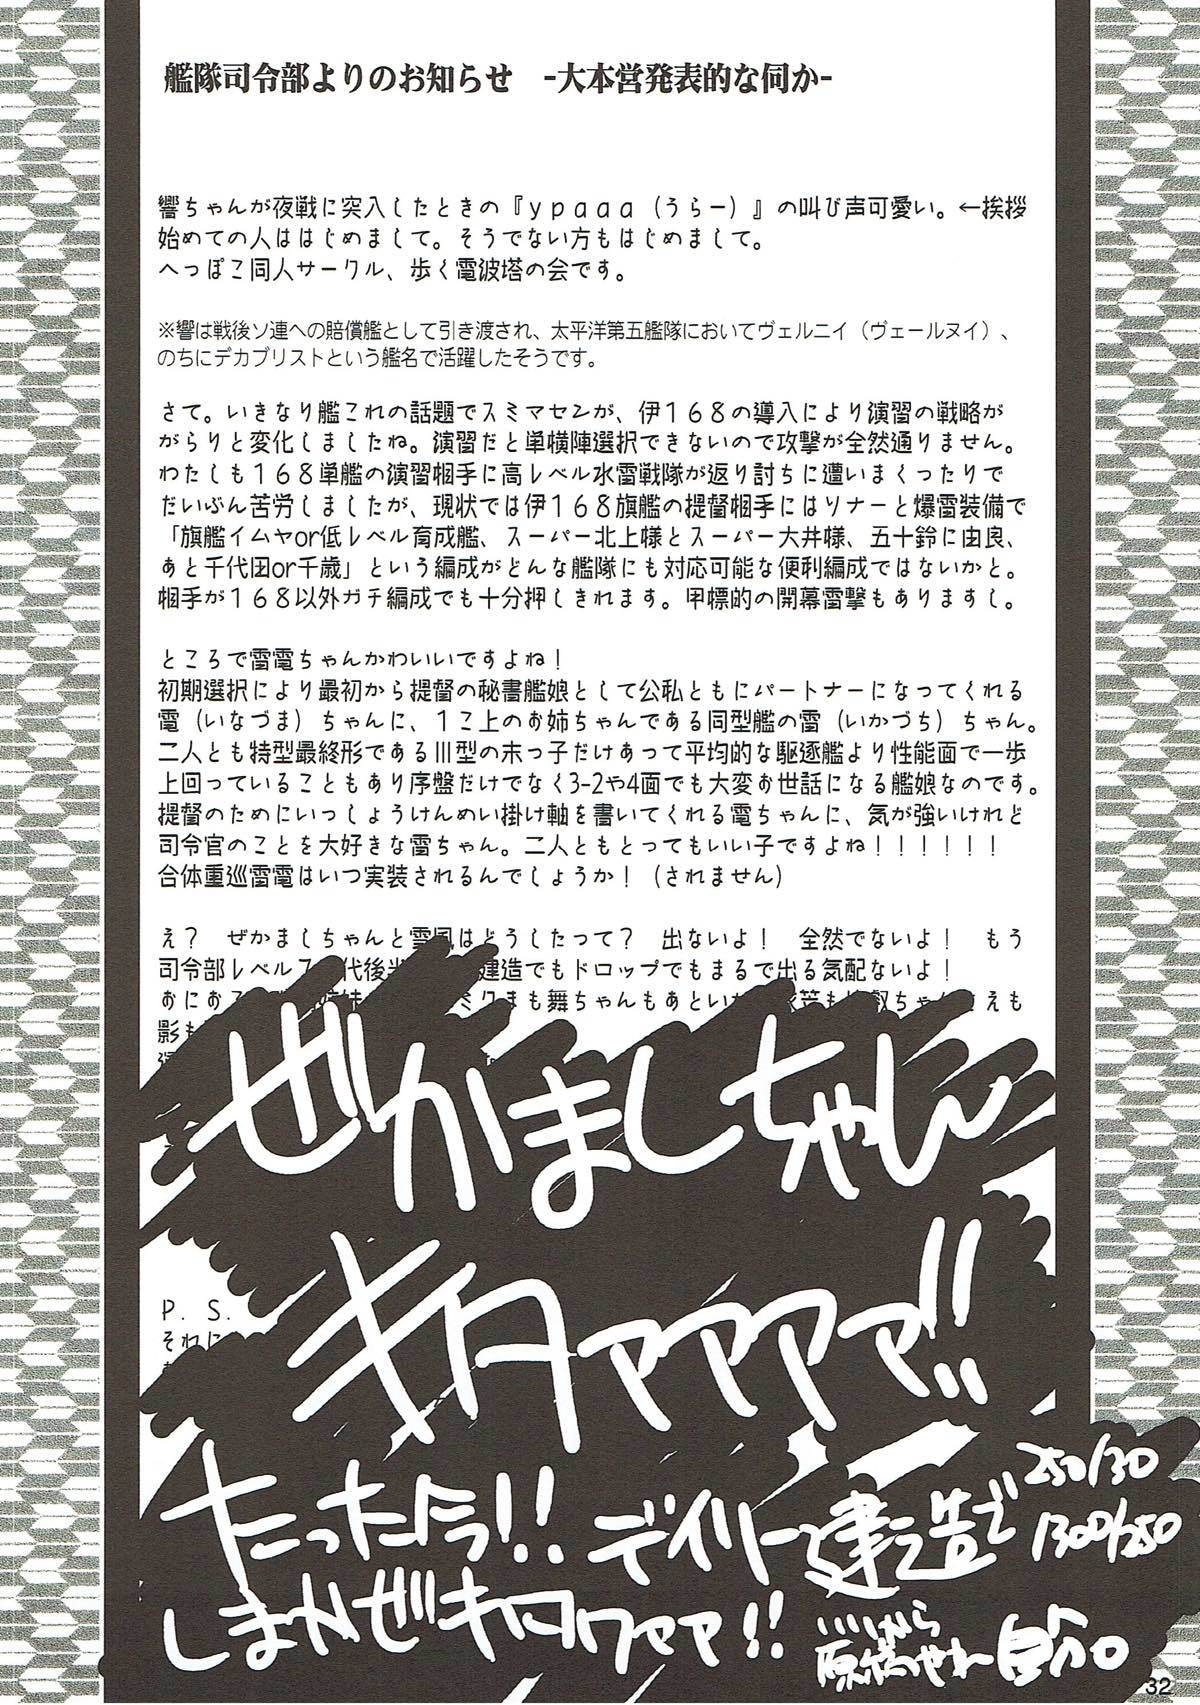 艦隊司令部よりのお知らせ　-大本営発表的な伺か-
響ちゃんが夜戦に突入したときの『ypaaa（うらー）』の叫び声可愛い。←挨拶
始めての人ははじめまして。そうでない方もはじめまして。
へっぽこ同人サークル、歩く電波塔の会です。
※響は戦後ソ連への賠償艦として引き渡され、太平洋第五艦隊においてヴェルニイ（ヴェールヌイ）、
のちにデカブリストという艦名で活躍したそうです。
さて。いきなり艦これの話題でスミマセンが、伊１６８の導入により演習の戦略が
がらりと変化しましたね。演習だと単横陣選択できないので攻撃が全然通りません。
わたしも１６８単艦の演習相手に高レベル水雷戦隊が返り討ちに遭いまくったりで
だいぶん苦労しましたが、現状では伊１６８旗艦の提督相手にはソナーと爆雷装備で
「旗艦イムヤor低レベル育成艦、スーパー北上様とスーパー大井様、五十鈴に由良、
あと千代田or千歳」という編成がどんな艦隊にも対応可能な便利編成ではないかと。
相手が１６８以外ガチ編成でも十分押しきれます。甲標的の開幕雷撃もありますし。
ところで雷電ちゃんかわいいですよね！
初期選択により最初から提督の秘書艦娘として公私ともにパートナーになってくれる
電（いなづま）ちゃんに、１こ上のお姉ちゃんである同型艦の雷（いかづち）ちゃん。
二人とも特型最終形であるⅢ型の末っ子だけあって平均的な駆逐艦より性能面で一歩
上回っていることもあり序盤だけでなく3-2や4面でも大変お世話になる艦娘なのです。
提督のためにいっしょうけんめい掛け軸を書いてくれる電ちゃんに、気が強いけれど
司令官のことを大好きな雷ちゃん。二人ともとってもいい子ですよね！！！！！！
合体重巡雷電はいつ実装されるんでしょうか！（されません）
え？　ぜかましちゃんと雪風はどうしたって？　出ないよ！　全然でないよ！　もう
司令部レベル７ 代後半 建造でもドロップでもまるで出る気配ないよ！
影も
ぜかましちゃん
キタァアアア!!
P. S.
それに
たった今!! デイリー建造で 250/30
1300/250
しまかぜキタワァァア!!
自分
32